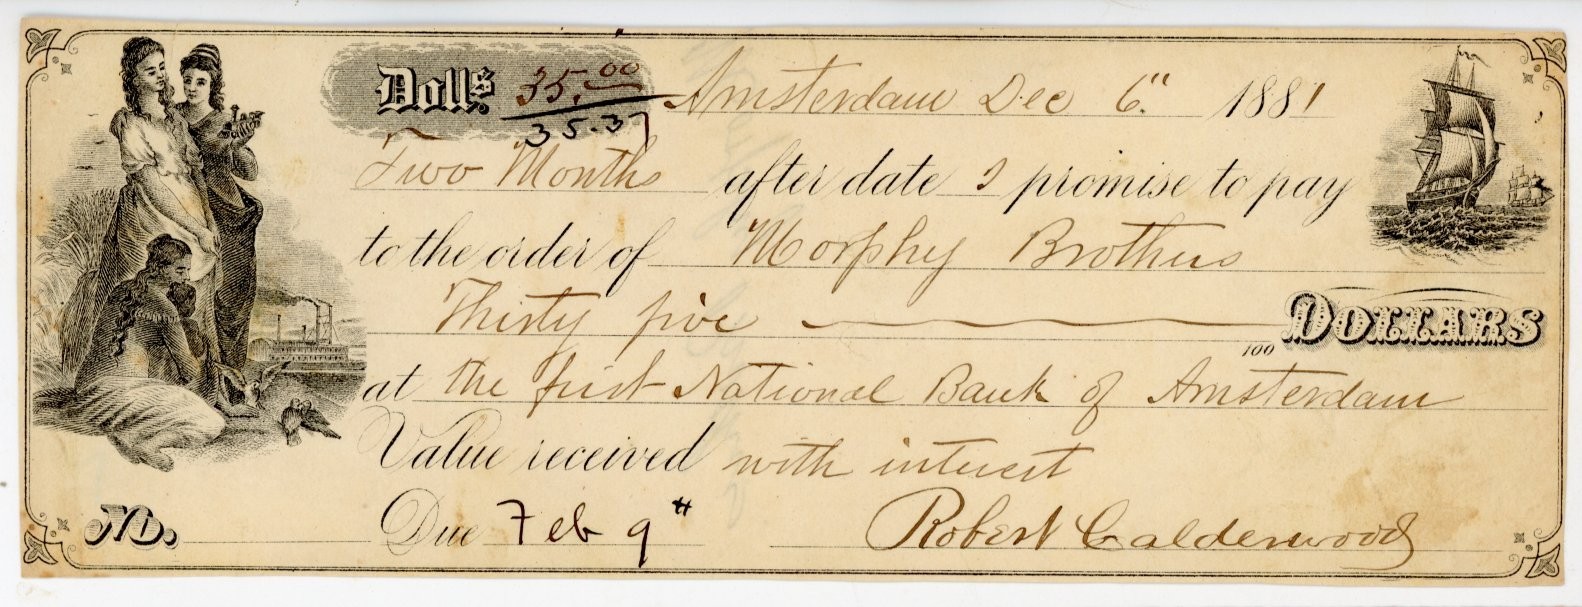 Dolls. 35.00 Amsterdam Dec 6." 1881
35.37
Two Months after date I promise to pay
to the order of Morphy Brothers
Thirty five 100 DOLLARS
at the first National Bank of Amsterdam
Value received with interest
No. Due Feb 9th Robert Calderwood